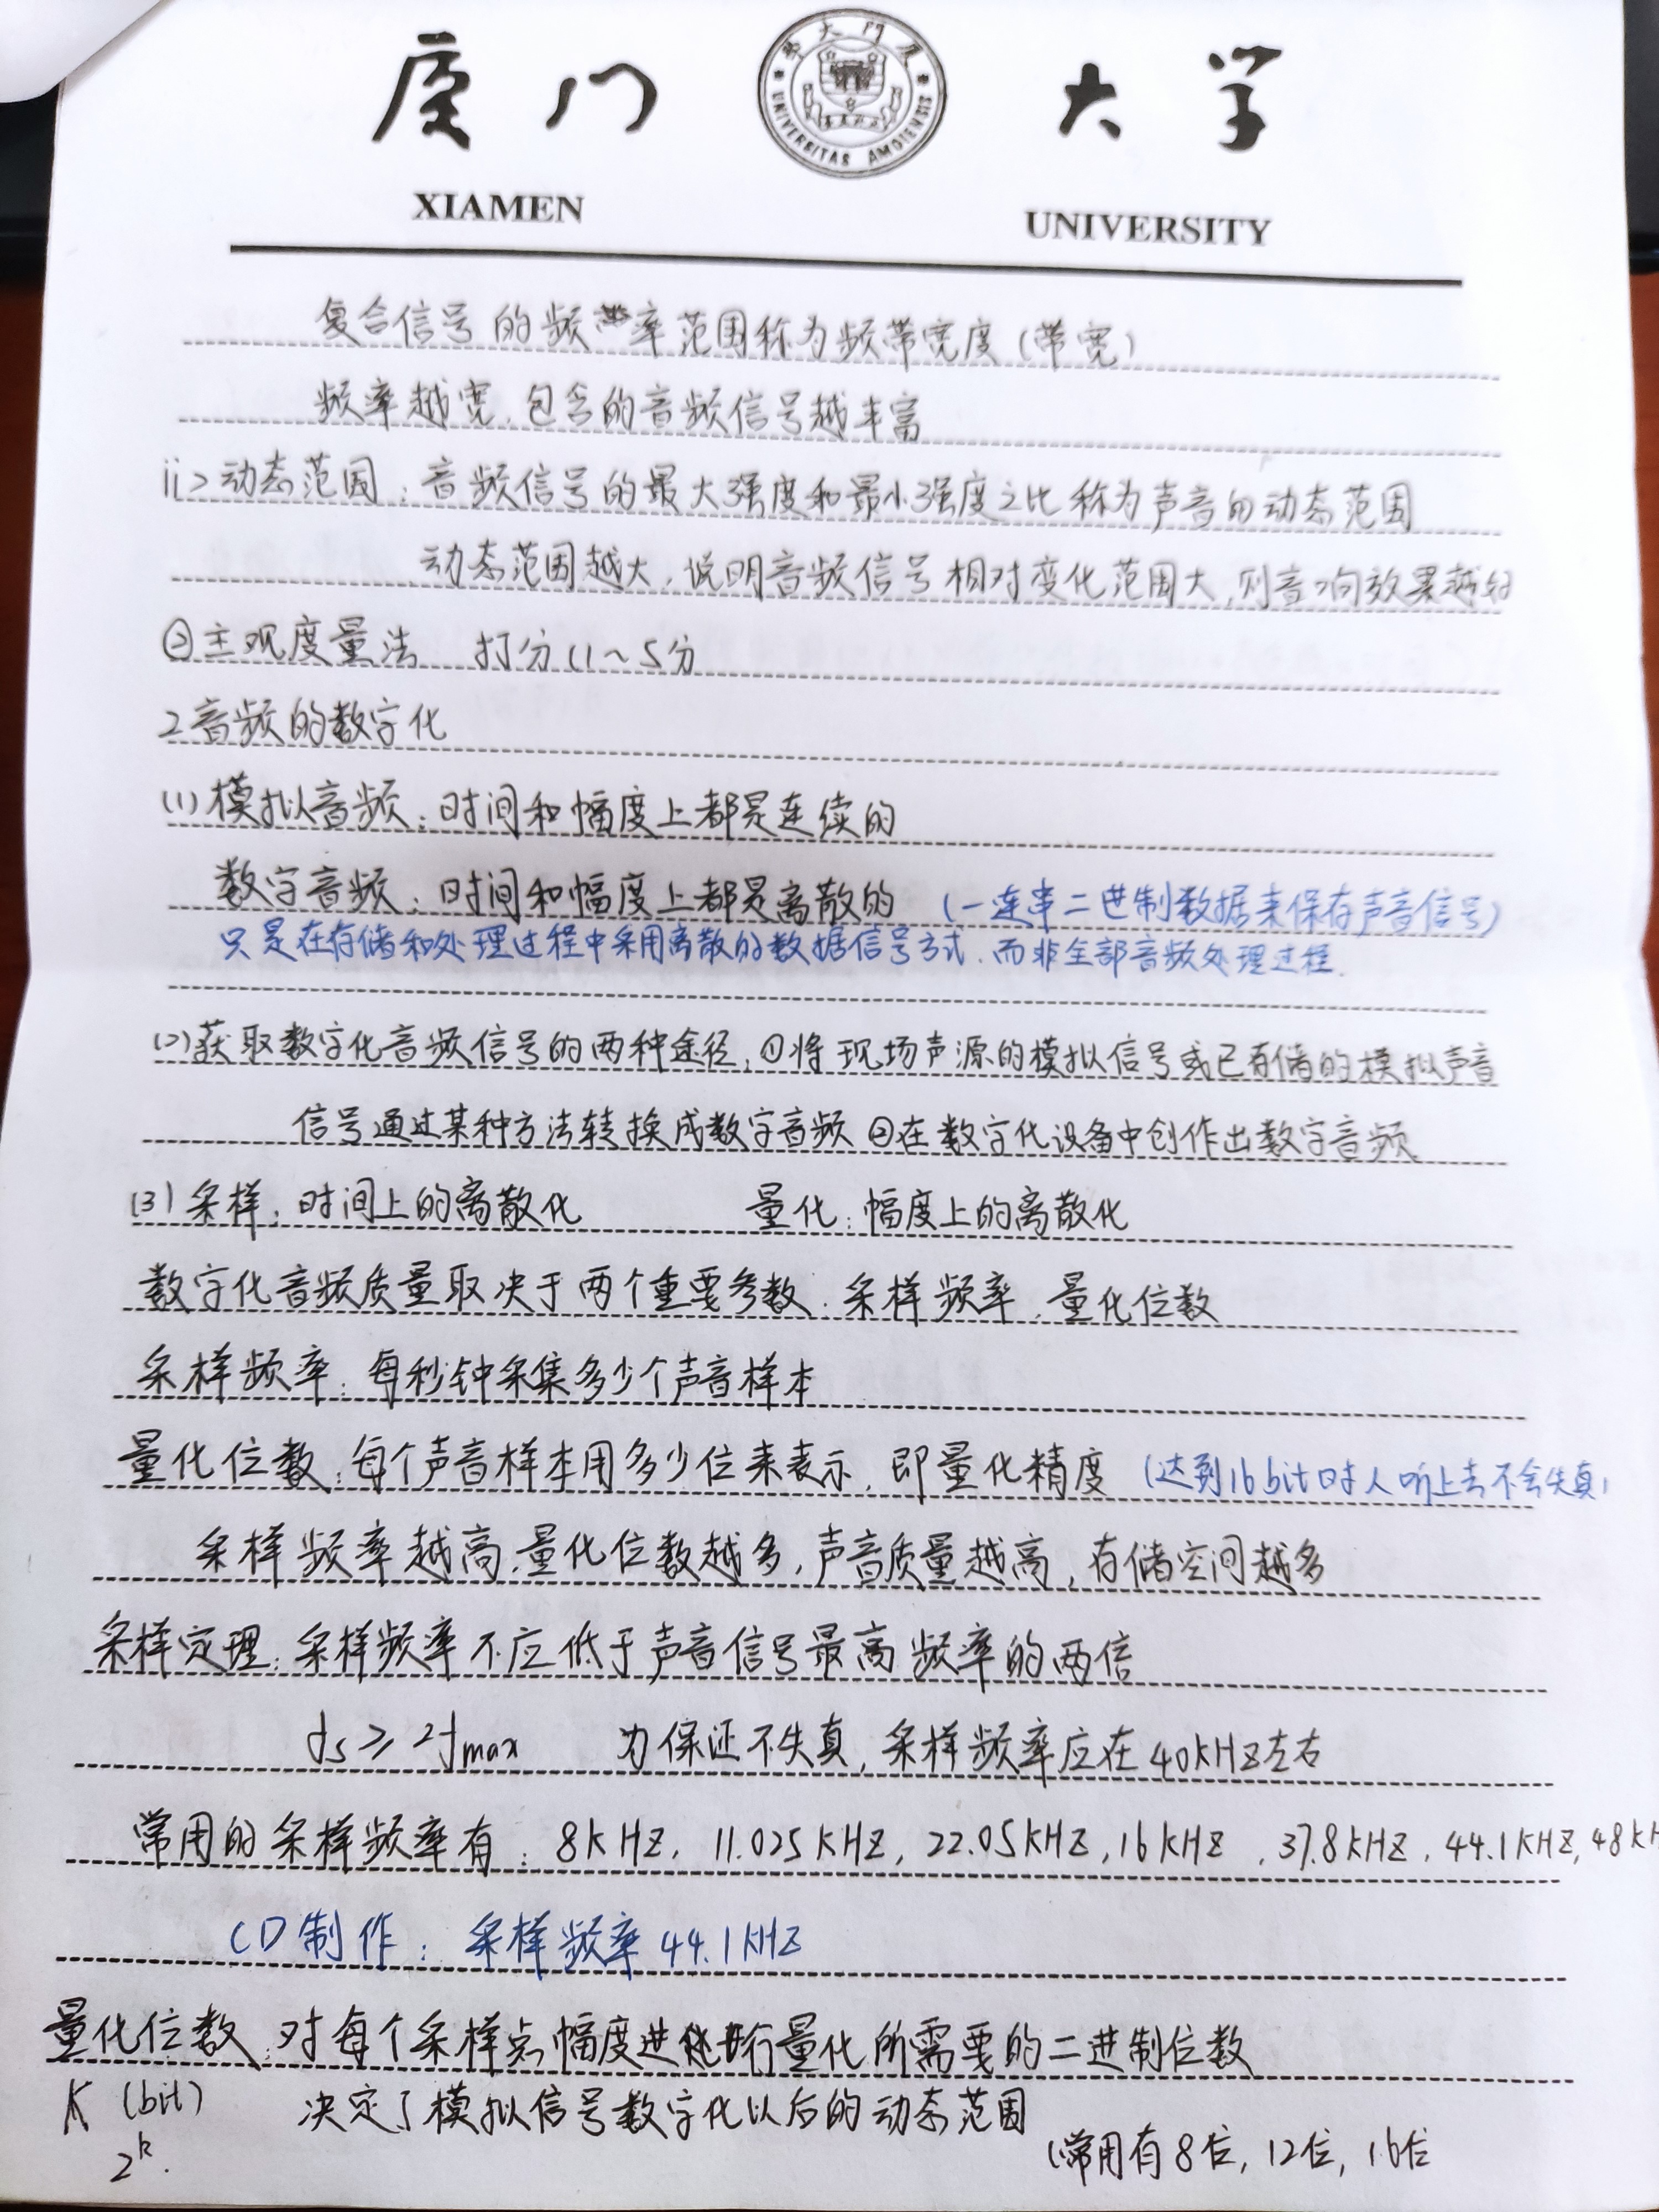 厦门大学
XIAMEN UNIVERSITY
UNIVERSITAS AMOIENSIS
复合信号的频率范围称为频带宽度(带宽)
频率越宽,包含的音频信号越丰富
ii>动态范围:音频信号的最大强度和最小强度之比称为声音的动态范围
动态范围越大,说明音频信号相对变化范围大,则音响效果越好
②主观度量法 打分(1~5分
2 音频的数字化
(1)模拟音频:时间和幅度上都是连续的
数字音频:时间和幅度上都是离散的 (一连串二进制数据来保存声音信号)
只是在存储和处理过程中采用离散的数据信号方式,而非全部音频处理过程.
(2)获取数字化音频信号的两种途径:①将现场声源的模拟信号或已存储的模拟声音
信号通过某种方法转换成数字音频 ②在数字化设备中创作出数字音频
(3)采样:时间上的离散化 量化:幅度上的离散化
数字化音频质量取决于两个重要参数:采样频率,量化位数
采样频率:每秒钟采集多少个声音样本
量化位数:每个声音样本用多少位来表示,即量化精度 (达到16bit时人听上去不会失真)
采样频率越高,量化位数越多,声音质量越高,存储空间越多
采样定理:采样频率不应低于声音信号最高频率的两倍
fs≥2fmax 为保证不失真,采样频率应在40kHz左右
常用的采样频率有:8kHz, 11.025kHz, 22.05kHz, 16kHz, 37.8kHz, 44.1kHz, 48kH
CD制作:采样频率44.1kHz
量化位数:对每个采样点幅度进行量化所需要的二进制位数
K (bit) 决定了模拟信号数字化以后的动态范围
2^k. (常用有8位,12位,16位